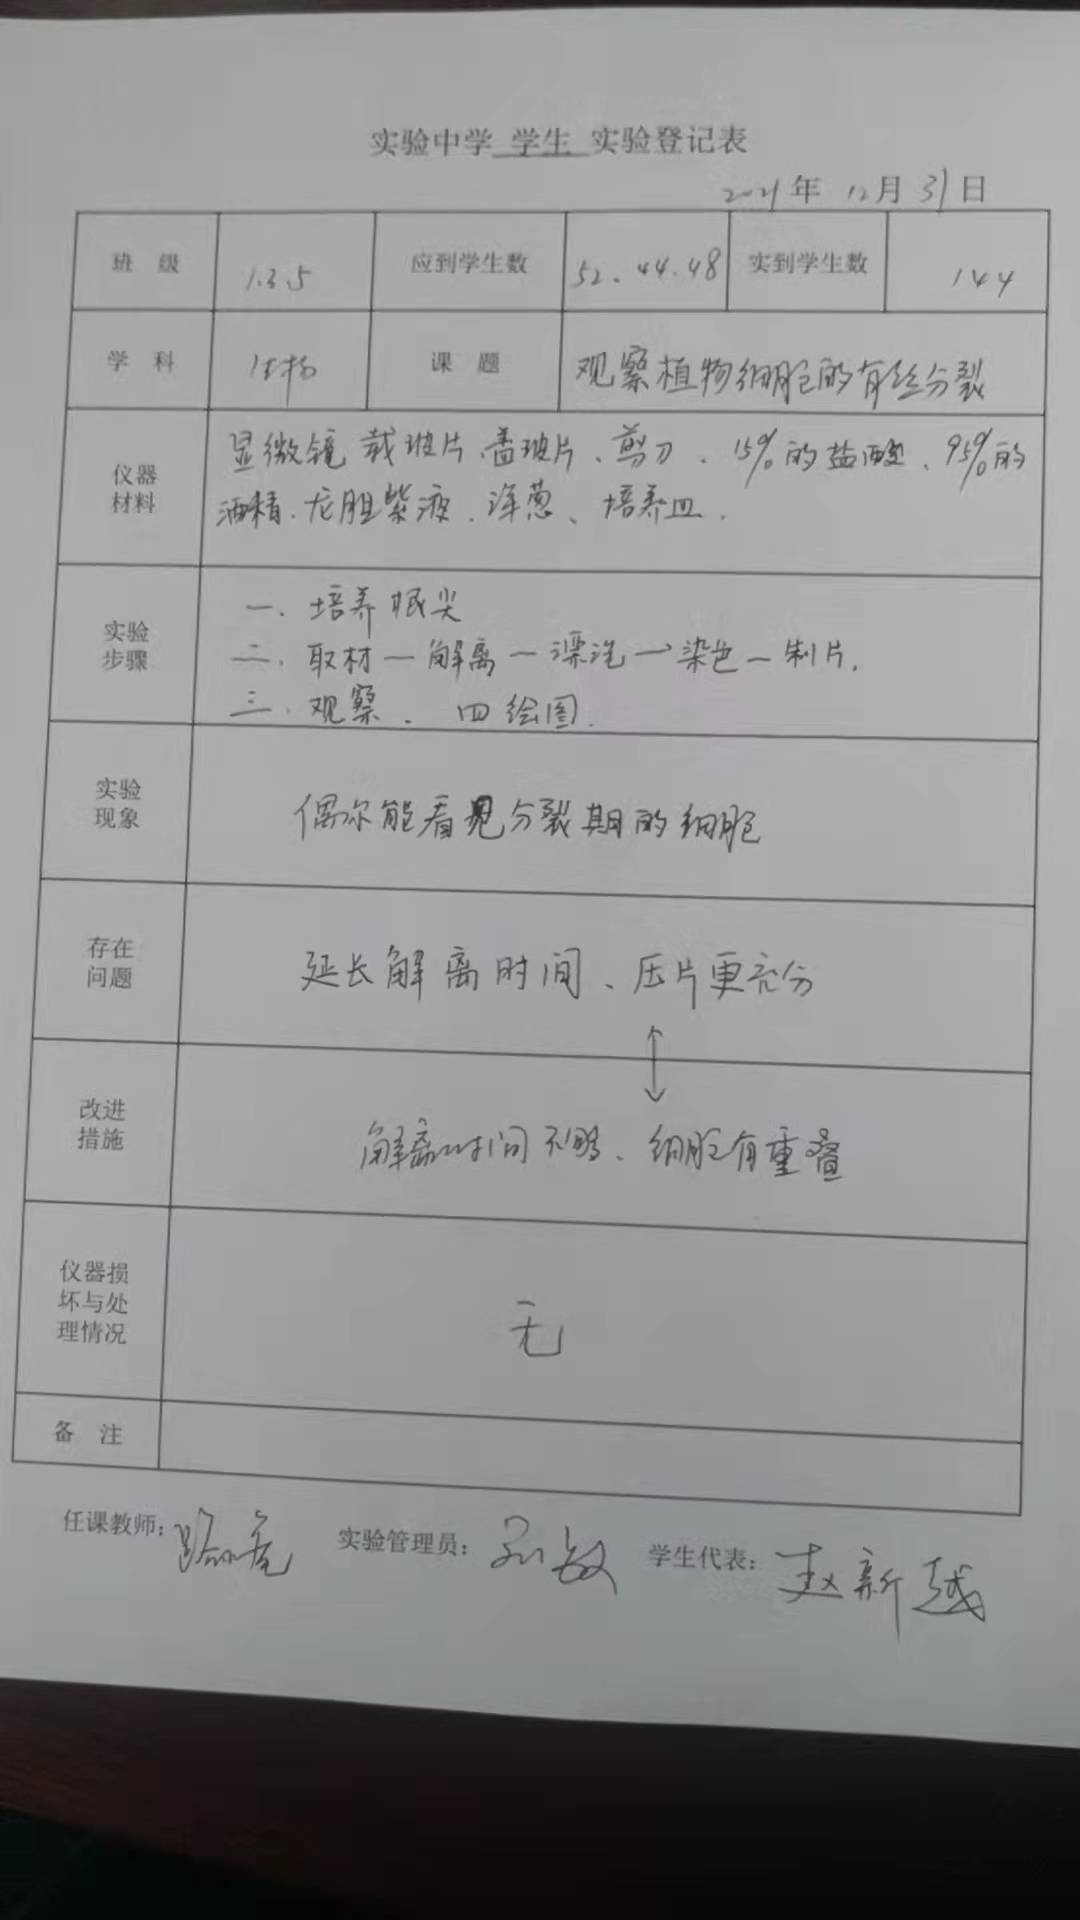 实验中学 学生 实验登记表
2021年 12月 31日
班 级 1.3.5 应到学生数 52.44.48 实到学生数 144
学 科 生物 课 题 观察植物细胞的有丝分裂
仪器材料
显微镜 载玻片、盖玻片、剪刀、15%的盐酸、95%的
酒精、龙胆紫液、洋葱、培养皿.
实验步骤
一、培养根尖
二、取材—解离—漂洗→染色—制片.
三、观察. 四绘图.
实验现象
偶尔能看见分裂期的细胞
存在问题
延长解离时间、压片更充分
改进措施
解离时间不够、细胞有重叠
仪器损坏与处理情况
无
备 注
任课教师: 实验管理员: 孙敏 学生代表: 赵新越